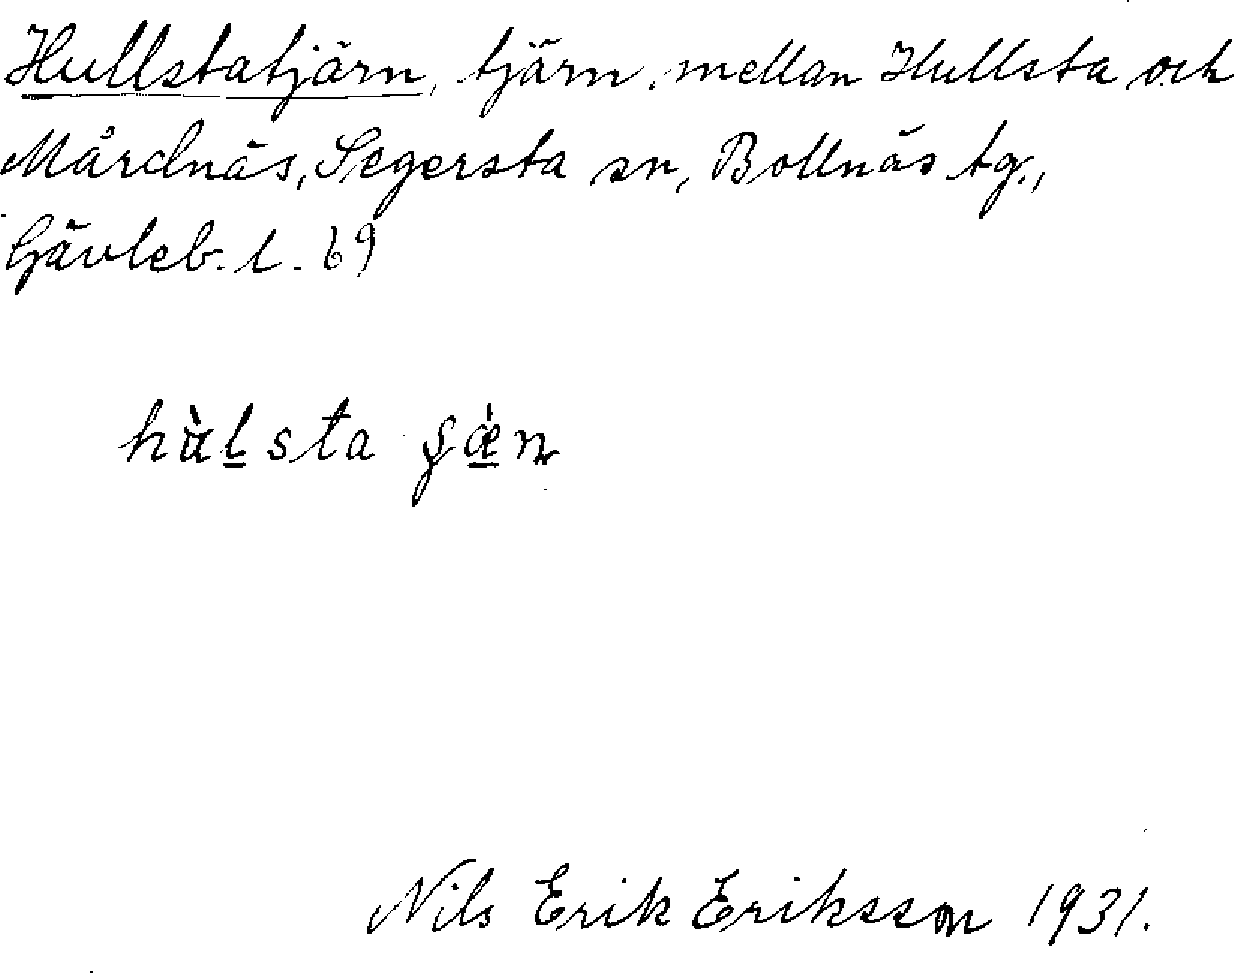 Hullstatjärn, tjärn, mellan Hullsta och
Mårdnäs, Segersta sn, Bollnäs tg.,
Gävleb. l. 69
Nils Erik Eriksson 1931.